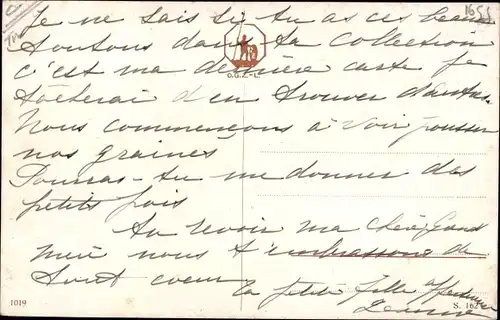 Je ne sais si tu as ces beaux
toutous dans ta collection
O.G.Z.-L.
c'est ma dernière carte je
tâcherai d'en trouver d'autres
Nous commençons à voir pousser
nos graines
Pourras-tu me donner des
petits pois
Au revoir ma chère Grand
mère nous t'embrassons de
tout coeur
ta petite fille affectueuse
1019
S. 16